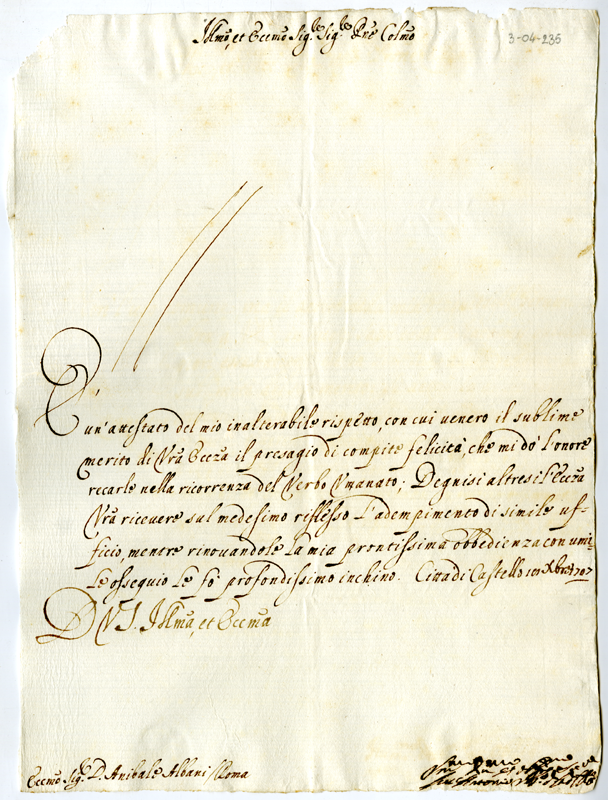 Illmo, et Eccmo Sigre Sigre Prne Colmo
3-04-235
È un'attestato del mio inalterabile rispetto, con cui venero il sublime
merito di Vra Eccza il presagio di compite felicità, che mi dò l'onore
recarle nella ricorrenza del Verbo Umanato; Degnisi altresi l'Eccza
Vra ricevere sul medesimo riflesso l'adempimento di simile uf-
ficio, mentre rinovandole la mia prontissima obbedienza con umi-
le ossequio le fò profondissimo inchino. Città di Castello Xbre 1707
D V. S. Illma, et Eccma
Eccmo Sigre D. Anibale Albani Roma